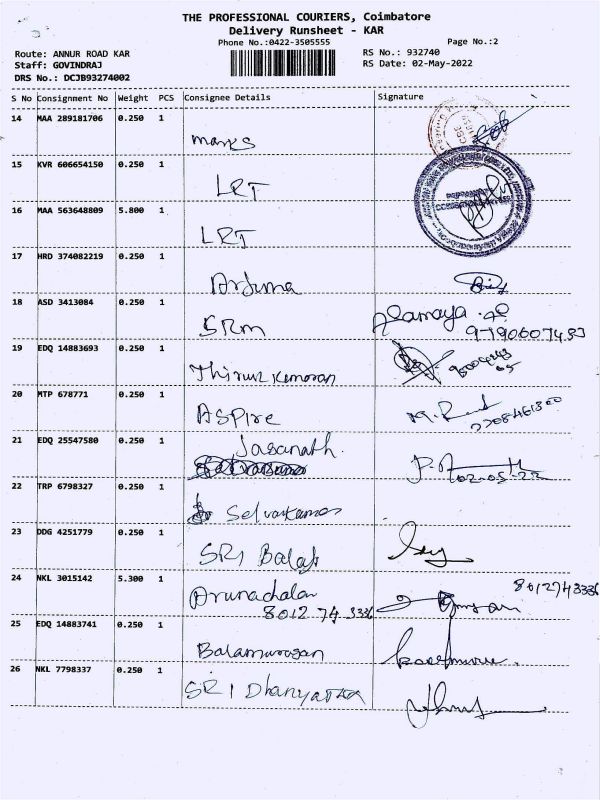 THE PROFESSIONAL COURIERS, Coimbatore
Delivery Runsheet - KAR
Phone No.:0422-3505555
Page No.:2
Route: ANNUR ROAD KAR
RS No.: 932740
Staff: GOVINDRAJ
RS Date: 02-May-2022
DRS No.: DCJB93274002
S No Consignment No Weight PCS Consignee Details Signature
14 MAA 289181706 0.250 1
marks
15 KVR 606654150 0.250 1
LRT
16 MAA 563648809 5.800 1
LRT
17 HRD 374082219 0.250 1
Arjuna
18 ASD 3413084 0.250 1
SRM
9790607453
19 EDQ 14883693 0.250 1
Thirukumaran
20 MTP 678771 0.250 1
ASPIRE
21 EDQ 25547580 0.250 1
Jasanath.
02-05-22
22 TRP 6798327 0.250 1
Selvakumar
23 DDG 4251779 0.250 1
SRI Balaji
24 NKL 3015142 5.300 1
Arunachalam
8012743336
8012 74 3336
25 EDQ 14883741 0.250 1
Balamurugan
26 NKL 7798337 0.250 1
SRI Dhanyattha